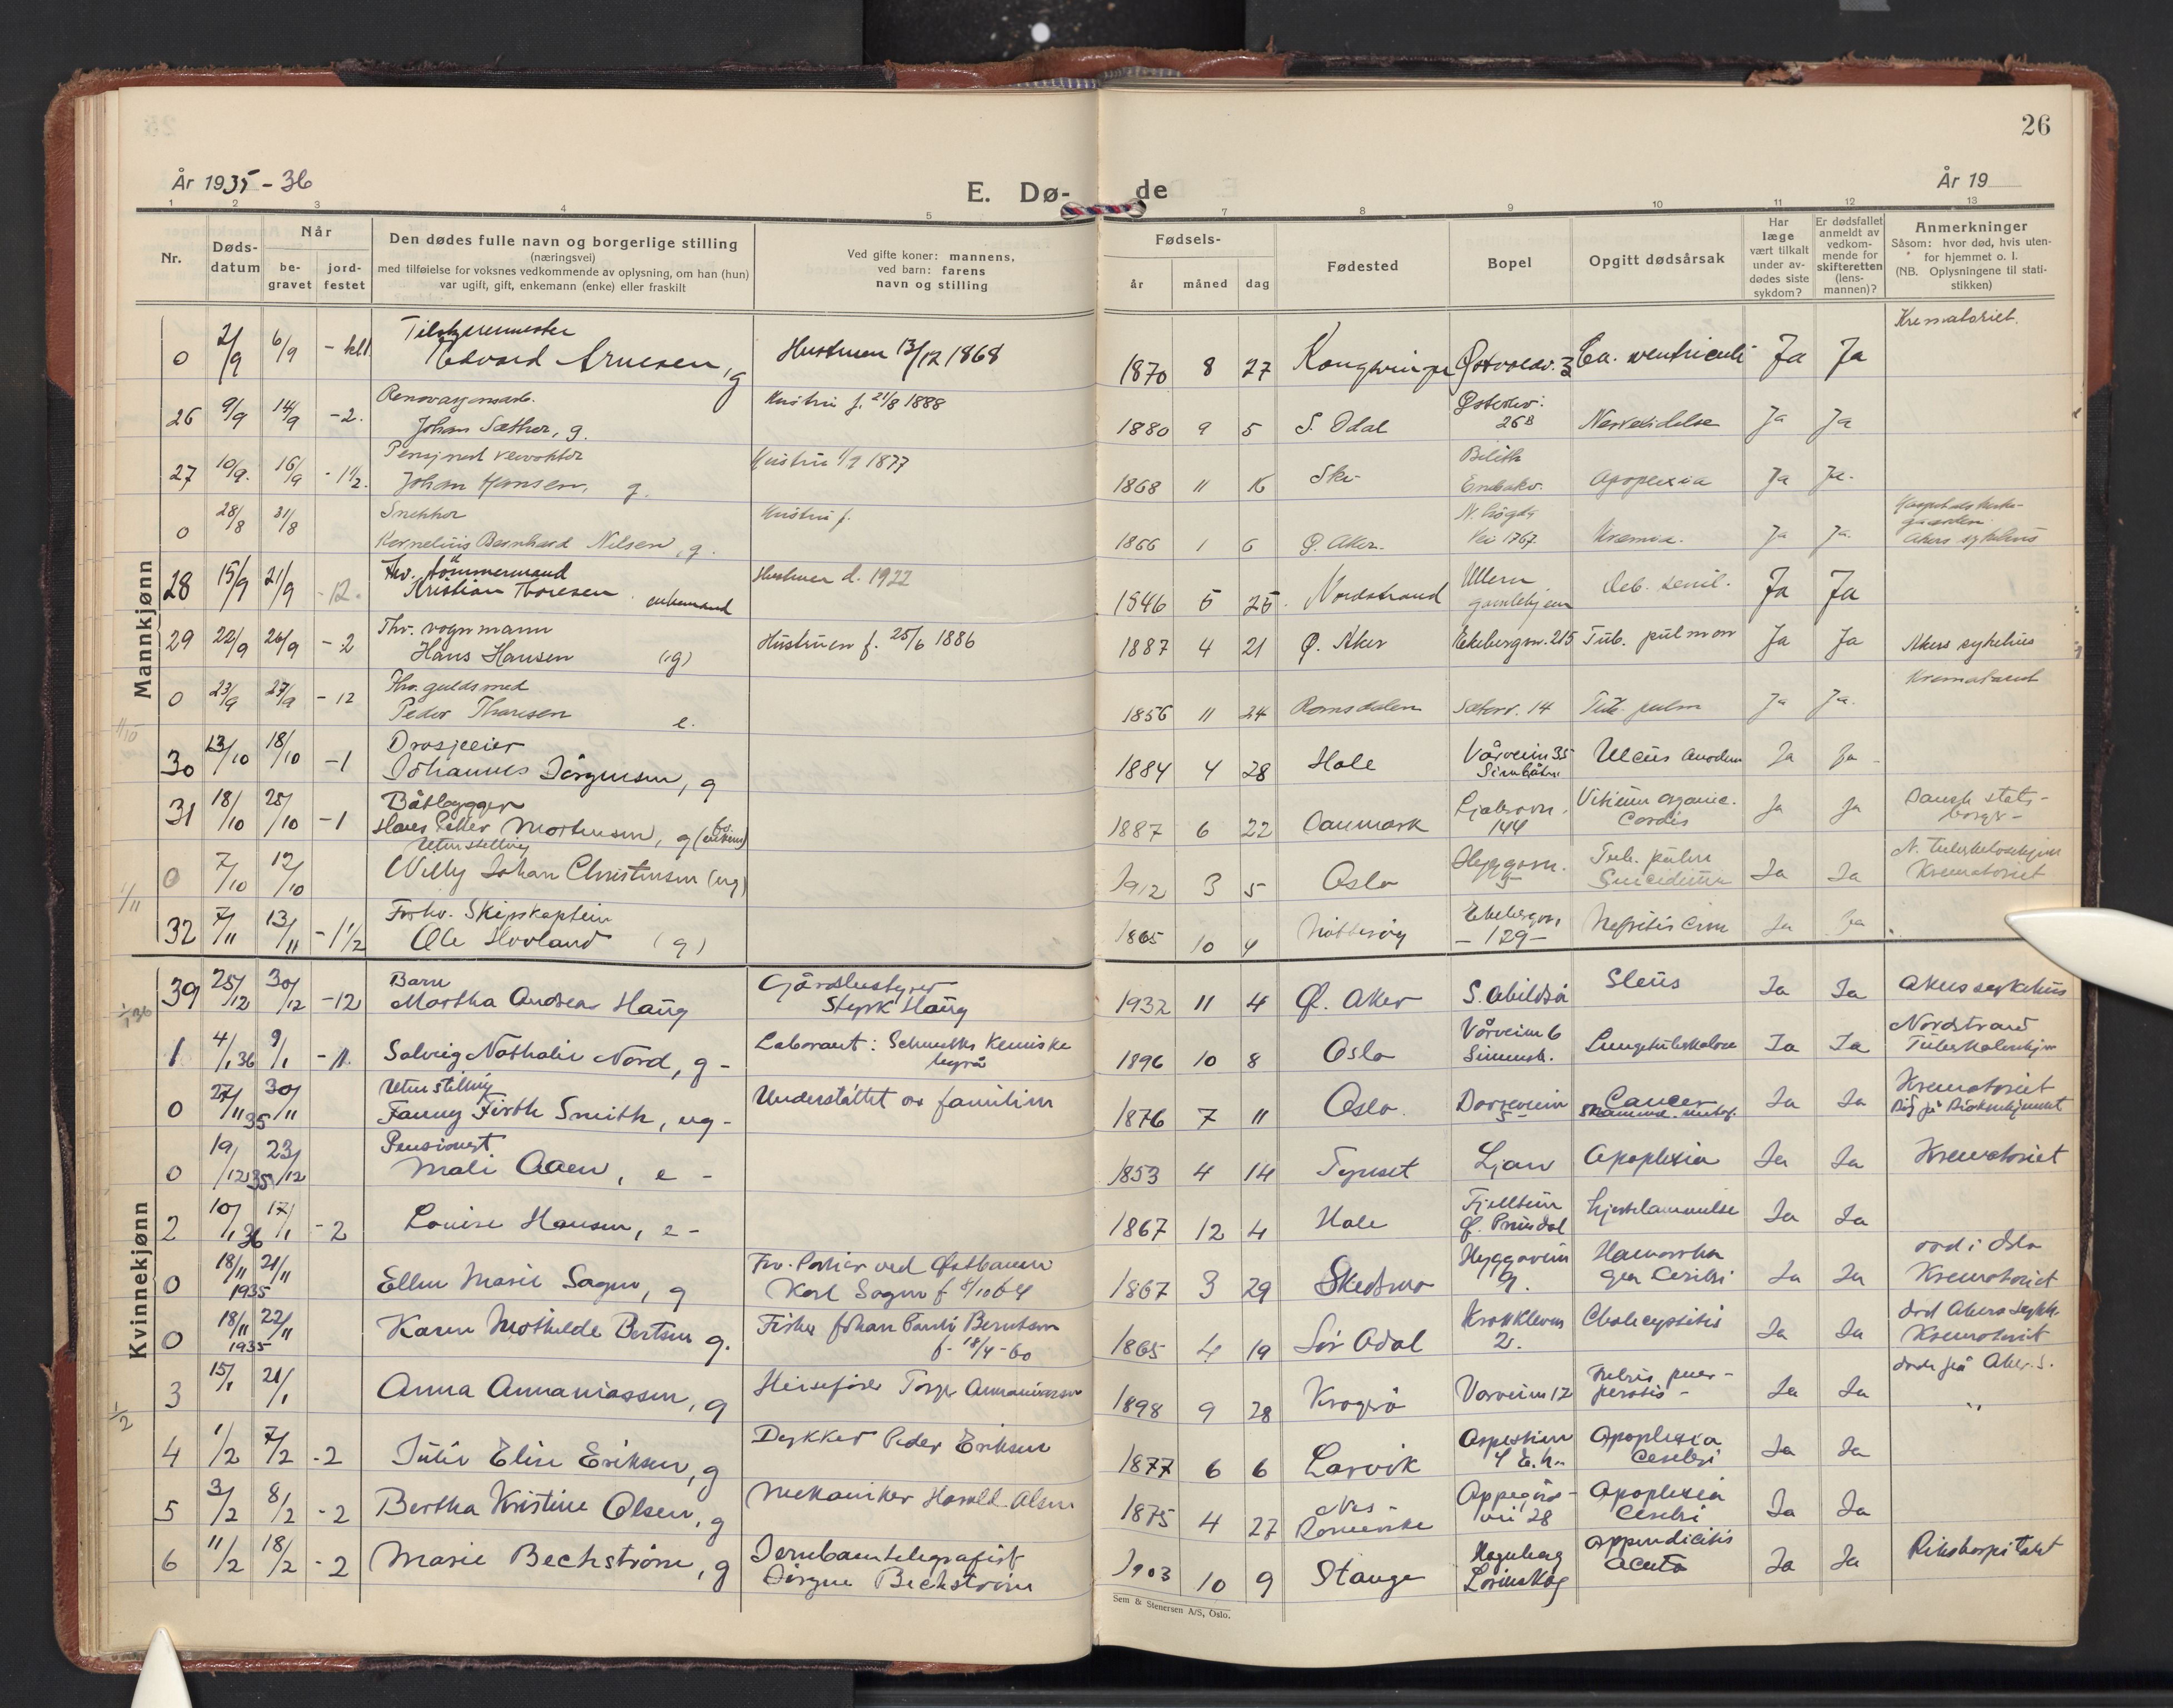 26
År 1935 - 36
E. Dø-
de
År 19
1 2 3 4 5 7 8 9 10 11 12 13
Nr.
Døds-
datum
Når
be-
gravet
jord-
festet
Den dødes fulle navn og borgerlige stilling
(næringsvei)
med tilføielse for voksnes vedkommende av oplysning, om han (hun)
var ugift, gift, enkemann (enke) eller fraskilt
Ved gifte koner: mannens,
ved barn: farens
navn og stilling
Fødsels-
år måned dag
Fødested
Bopel
Opgitt dødsårsak
Har
læge
vært tilkalt
under av-
dødes siste
sykdom?
Er dødsfallet
anmeldt av
vedkom-
mende for
skifteretten
(lens-
mannen)?
Anmerkninger
Såsom: hvor død, hvis uten-
for hjemmet o. l.
(NB. Oplysningene til stati-
stikken)
Mannkjønn
Krematoriet.
0 2/9 6/9 Edvard Arnesen, g Hustruen 13/12 1868 1870 8 27 Ca. ventriculi Ja Ja
26 9/9 14/9 -2. Johan Sæther, g. Hustru f. 21/8 1888 1880 9 5 S. Odal Østerlv. 26B Ja Ja
27 10/9. 16/9 - 1½. Johan Hansen, g. 1877 1868 11 16 Ski Enebakv. Apoplexia Ja Ja.
Snekker
0 28/8 31/8 Kornelius Bernhard Nilsen, g. Hustru f. 1866 1 6 Ø. Aker. Vei 1767. Uræmia. Ja Ja. Akers sykehus
Fhv. tømmermand
28 15/9 21/9 -12. Kristian Thoresen enkemand Hustruen d. 1922 1846 5 25. Nordstrand Ullern gamlehjem Deb. senil. Ja Ja
Fhv. vognmann
29 22/9 26/9 - 2 Hans Hansen (g) Hustruen f. 25/6 1886 1887 4 21 Ø. Aker Ekebergv. 215 Tub. pulmon Ja Ja Akers sykehus
Fhv. guldsmed Krematoriet
0 23/9 27/9 - 12 Peder Thoresen e. 1856 11 24 Romsdalen Sæterv. 14 Tub. pulm Ja Ja.
Drosjeeier
30 13/10 18/10 -1 Johannes Jörgensen, g 1884 4 28 Hole Vårveien 35 Ulcus duodeni Ja Ja
Båtbygger
31 18/10 25/10 -1 Hans Petter Mortensen, g 1887 6 22 Danmark Ljabrovn. 144 Vitium organic. Cordis Ja Ja Dansk stats-borger
Uten stilling
0 7/10 12/10 Willy Johan Christensen (ug) 1912 3 5 Oslo Heggovn. 5 Tub. pulm Suicidium Ja Ja Krematoriet
Forhv. Skipskaptein
32 7/11 13/11 -1½ Ole Hovland (g) 1865 10 4 Nötteröy Ekebergvn. - 129 - Ja Ja
Kvinnekjønn
Barn
39 25/12 30/12 -12 Martha Andrea Haug Gårdsbestyrer Styrk Haug 1932 11 4 Ø. Aker S. Abildsö Ileus Ja Ja Akers sykehus
1 4/1 36 9/1 -11. Solveig Nathalie Nord, g - Laborant: Schmelks Kemiske byrå 1896 10 8 Oslo Vårveien 6 Simensb. Lungetuberkulose Ja Ja Nordstrand Tuberkulosehjem
Uten stilling
0 27/11 35 30/11 Fanny Firth Smith, ug - Understöttet av familien 1876 7 11 Oslo. 5 Cancer Ja Ja Krematoriet
Pensionert
0 19/12 35 23/12 Mali Aaen, e - 1853 4 14 Tynset Ljan Apoplexia Ja Ja Krematoriet
2 10/1 36 17/1 - 2 Louise Hansen, e - 1867 12 4 Hole Fjellheim Ø. Prinsdal hjertelammelse Ja Ja
0 18/11 1935 21/11 Ellen Marie Sagen, g Fhv. Portier ved Østbanen Karl Sagen f 8/10 64 1867 3 29 Skedsmo Heggoveien 9. Hæmorrhagia Cerebri Ja Ja död i Oslo Krematoriet
0 18/11 1935 22/11 Karen Mathilde Berntsen g. Fisker Johan Pauli Berntsen f. 18/4 - 60 1865 4 19 Sör Odal Krokkleven 2. Cholecystitis Ja Ja död Akers sykh. Krematoriet
3 15/1 21/1 Anna Annaniassen, g Heisefører Torger Annaniassen 1898 9 28 Kragerö Vårveien 12 Febris puerperalis - Ja Ja döde på Aker S.
4 1/2 7/2 -2 Julie Elise Eriksen, g Dykker Peder Eriksen 1877 6 6 Larvik Apoplexia Cerebri Ja Ja
5 3/2 8/2 - 2 Bertha Kristine Olsen, g Mekaniker Harald Olsen 1875 4 27 Nes - Romerike Oppegårdvei 28 Apoplexia Cerebri Ja Ja
6 11/2 18/2 - 2 Marie Bechström, g Jernbanetelegrafist Jörgen Bechström 1903 10 9 Stange Lörenskog Appendicitis acuta Ja Ja Rikshospitalet
Sem & Stenersen A/S, Oslo.